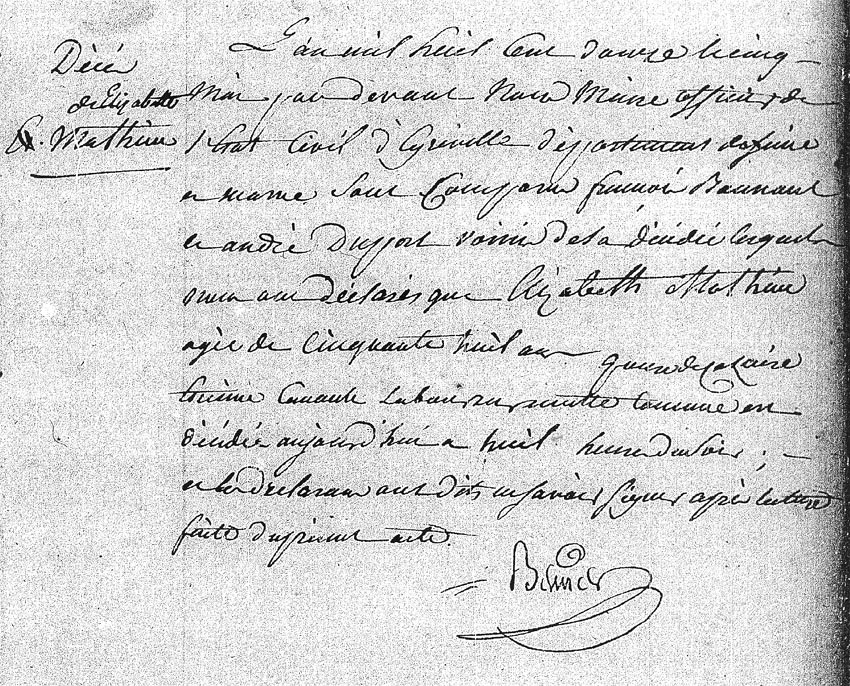 Décè
de Elizabette
Mathieu
L'an mil huit cent douze le cinq
Mai par devant Nous Maire officier de
l'Etat Civil d'Egreville département de Seine
et marne Sont Comparu francois Bonnaut
et andré Dupport voisin de la décédée lesquels
nous ont déclarés que Elizabeth Mathieu
agée de Cinquante huit ans
Canault Laboureur en cette Comune est
décédée aujourd'hui a huit heure du soir ;
et les déclarant ont dits ne savoir signer après lecture
faite du présent acte.